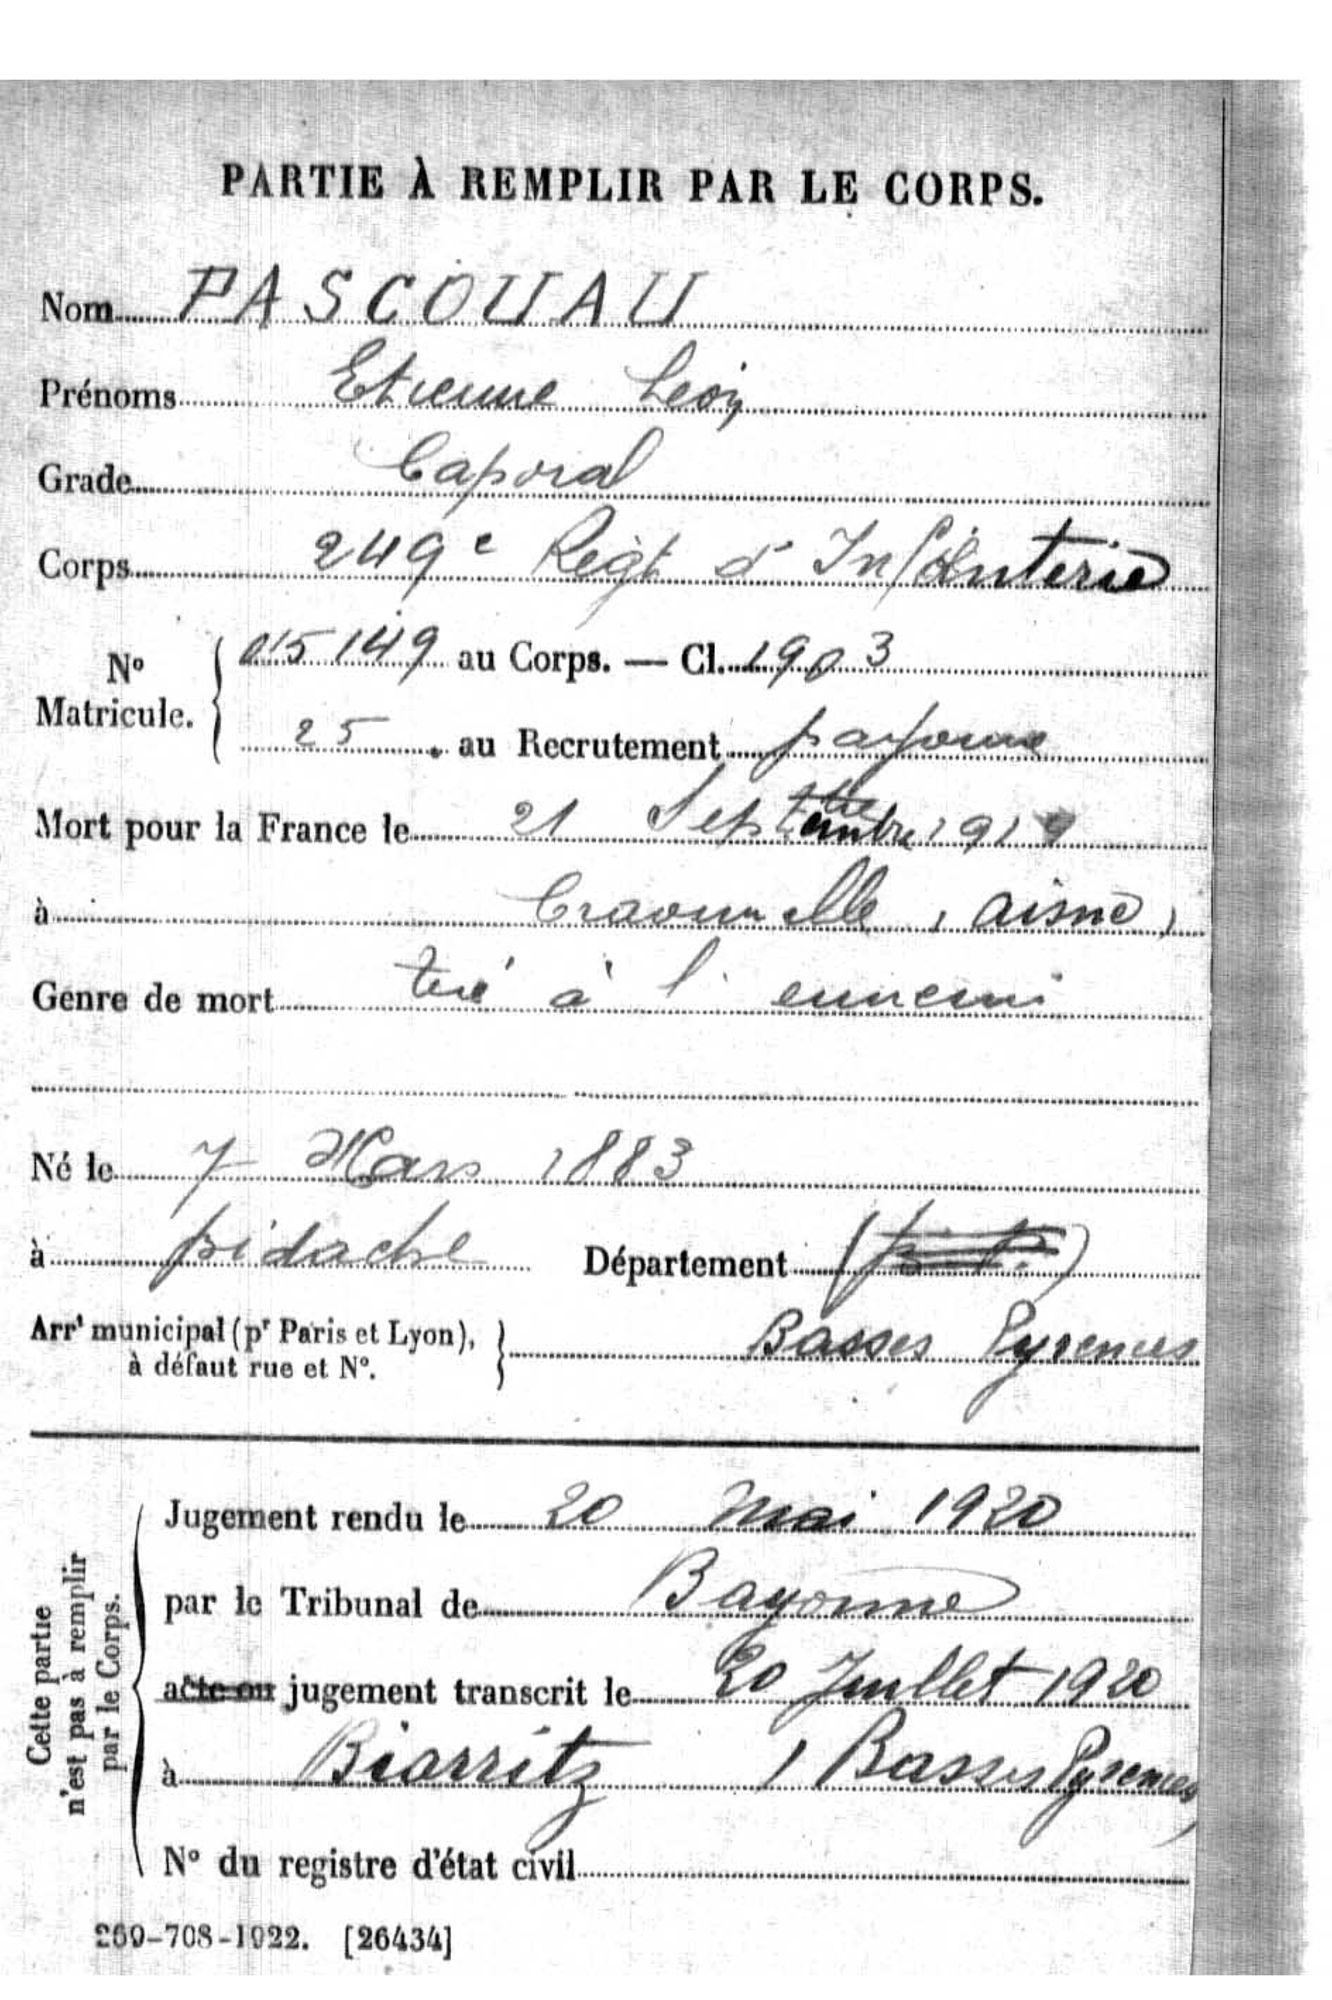 PARTIE À REMPLIR PAR LE CORPS.
Nom PASCOUAU
Prénoms Etienne Léon
Grade Caporal
Corps 249e Régt d'Infanterie
No Matricule. 015149 au Corps. — Cl. 1903
25 au Recrutement Bayonne
Mort pour la France le 21 Septembre 191
à Craonnelle (Aisne)
Genre de mort tué à l'ennemi
Né le 7 Mars 1883
à bidache Département
Arrt municipal (pr Paris et Lyon), à défaut rue et No. Basses Pyrenees
Cette partie n'est pas à remplir par le Corps.
Jugement rendu le 20 Mai 1920
par le Tribunal de Bayonne
acte ou jugement transcrit le 20 Juillet 1920
à Biarritz (Basses Pyrenees)
No du registre d'état civil
269-708-1922. [26434]